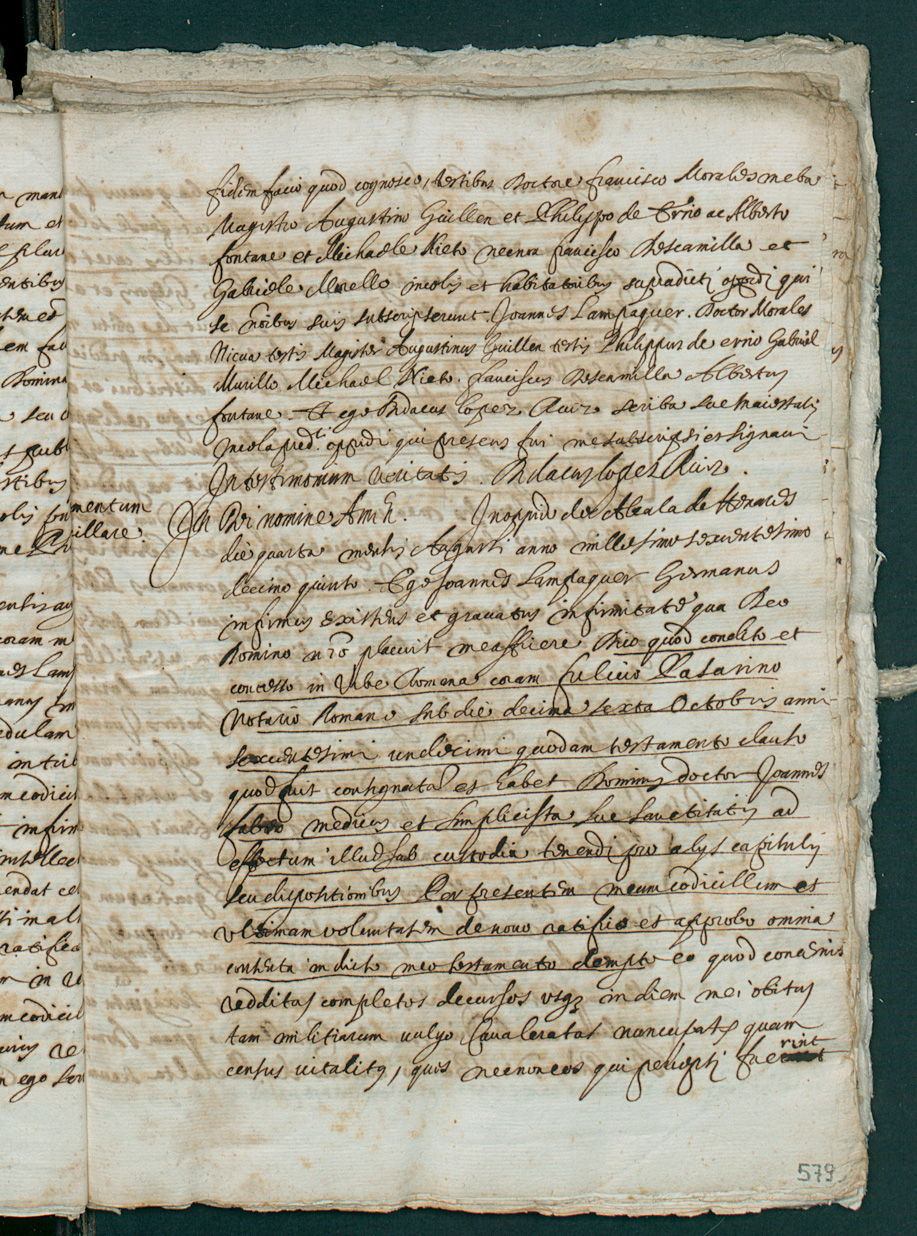 fidem facio quod cognosco, testibus Doctore francisco Morales
Magistro Augustino Guillen et Philippo de Errio ac Alberto
fontane et Michaele Nieto necnon francisco Descamilla et
Gabriele Murello incolis et habitatoribus supradicti oppidi qui
se noibus suis subscripserunt. Joannes Lampaguer. Doctor Morales
testis Magister Augustinus Guillen testis Philippus de errio Gabriel
Murillo Michael Nieto. franciscus Descamilla Albertus
fontane. Et ego Didacus lopez Ruiz scriba sue Maiestatis
Incola pred.ti oppidi qui presens fui me subscripsi et signavi
In testimonium veritatis. Didacus lopez Ruiz.
In Dei nomine Amen. In oppido de Alcala de Henares
die quarta mensis Augusti anno millesimo sexcentesimo
decimo quinto. Ego Joannes Lampaguer Germanus
infirmus existens et gravatus infirmitate qua Deo
Domino nro placuit me afficere Dico quod condito et
concesso in Urbe Romana coram fulicio Pasarino
Notario Romano sub die decima sexta Octobris anni
sexcentesimi undecimi quodam testamento clauso
quod fuit consignatum et habet Dominus doctor Joannes
fabro medicus et simplicista sue sanctitatis ad
effectum illud sub custodia tenendi pro alijs capitulis
seu dispositionibus Per presentem meum codicillum et
ultimam voluntatem de novo ratifico et approbo omnia
contenta in dicto meo testamento dempto eo quod concernit
redditus completos decursos usq3 in diem mei obitus
tam militiarum vulgo Cavaleratas nuncupatas quam
census vitalitij, quos necnon eos qui percepti fuerint
579